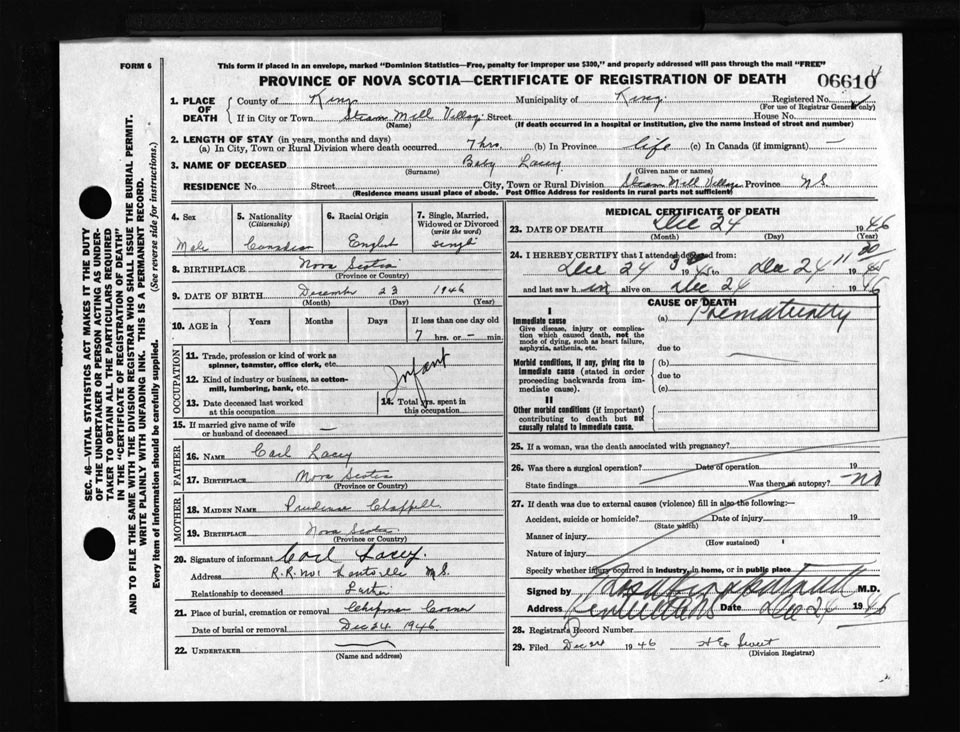 FORM 6
This form if placed in an envelope, marked "Dominion Statistics—Free, penalty for improper use $300," and properly addressed will pass through the mail "FREE"
PROVINCE OF NOVA SCOTIA—CERTIFICATE OF REGISTRATION OF DEATH
06610
1. PLACE OF DEATH
County of Kings Municipality of Kings Registered No.
(For use of Registrar General only)
If in City or Town Steam Mill Village Street House No.
(Name) (If death occurred in a hospital or institution, give the name instead of street and number)
2. LENGTH OF STAY (in years, months and days)
(a) In City, Town or Rural Division where death occurred. 7 hrs. (b) In Province life (c) In Canada (if immigrant) —
3. NAME OF DECEASED Baby Lacey
(Surname) (Given name or names)
RESIDENCE No. Street City, Town or Rural Division Steam Mill Village Province N.S.
(Residence means usual place of abode. Post Office Address for residents in rural parts not sufficient)
4. Sex
Male
5. Nationality
(Citizenship)
Canadian
6. Racial Origin
English
7. Single, Married, Widowed or Divorced
(write the word)
single
8. BIRTHPLACE Nova Scotia
(Province or Country)
9. DATE OF BIRTH December 23 1946
(Month) (Day) (Year)
10. AGE in
Years Months Days If less than one day old
7 hrs. or — min.
OCCUPATION
11. Trade, profession or kind of work as spinner, teamster, office clerk, etc.
Infant
12. Kind of industry or business, as cotton-mill, lumbering, bank, etc.
13. Date deceased last worked at this occupation
14. Total yrs. spent in this occupation
15. If married give name of wife or husband of deceased —
FATHER
16. NAME Carl Lacey
17. BIRTHPLACE Nova Scotia
(Province or Country)
MOTHER
18. MAIDEN NAME Prudence Chappell
19. BIRTHPLACE Nova Scotia
(Province or Country)
20. Signature of informant Carl Lacey.
Address R.R. No 1 Kentville N.S.
Relationship to deceased Father
21. Place of burial, cremation or removal Chipman Corner
Date of burial or removal Dec 24 1946
22. UNDERTAKER
(Name and address)
MEDICAL CERTIFICATE OF DEATH
23. DATE OF DEATH Dec 24 1946
(Month) (Day) (Year)
24. I HEREBY CERTIFY that I attended deceased from:
Dec 24 19 to Dec 24 19
and last saw h im alive on Dec 24 1946
CAUSE OF DEATH
I
Immediate cause
Give disease, injury or complication which caused death, not the mode of dying, such as heart failure, asphyxia, asthenia, etc.
(a) Prematurity
due to
Morbid conditions, if any, giving rise to immediate cause (stated in order proceeding backwards from immediate cause).
(b)
due to
(c)
II
Other morbid conditions (if important) contributing to death but not causally related to immediate cause.
25. If a woman, was the death associated with pregnancy?
26. Was there a surgical operation? Date of operation 19
State findings Was there an autopsy? no
27. If death was due to external causes (violence) fill in also the following:—
Accident, suicide or homicide? Date of injury 19
(State which)
Manner of injury
(How sustained)
Nature of injury
Specify whether injury occurred in industry, in home, or in public place
Signed by M.D.
Address Kentville N.S. Date Dec 24 1946
28. Registrar's Record Number
29. Filed Dec 24 1946 Sweet
(Division Registrar)
SEC. 46—VITAL STATISTICS ACT MAKES IT THE DUTY
OF THE UNDERTAKER OR PERSON ACTING AS UNDER-
TAKER TO OBTAIN ALL THE PARTICULARS REQUIRED
IN THE "CERTIFICATE OF REGISTRATION OF DEATH"
AND TO FILE THE SAME WITH THE DIVISION REGISTRAR WHO SHALL ISSUE THE BURIAL PERMIT.
WRITE PLAINLY WITH UNFADING INK. THIS IS A PERMANENT RECORD.
Every item of information should be carefully supplied. (See reverse side for instructions.)